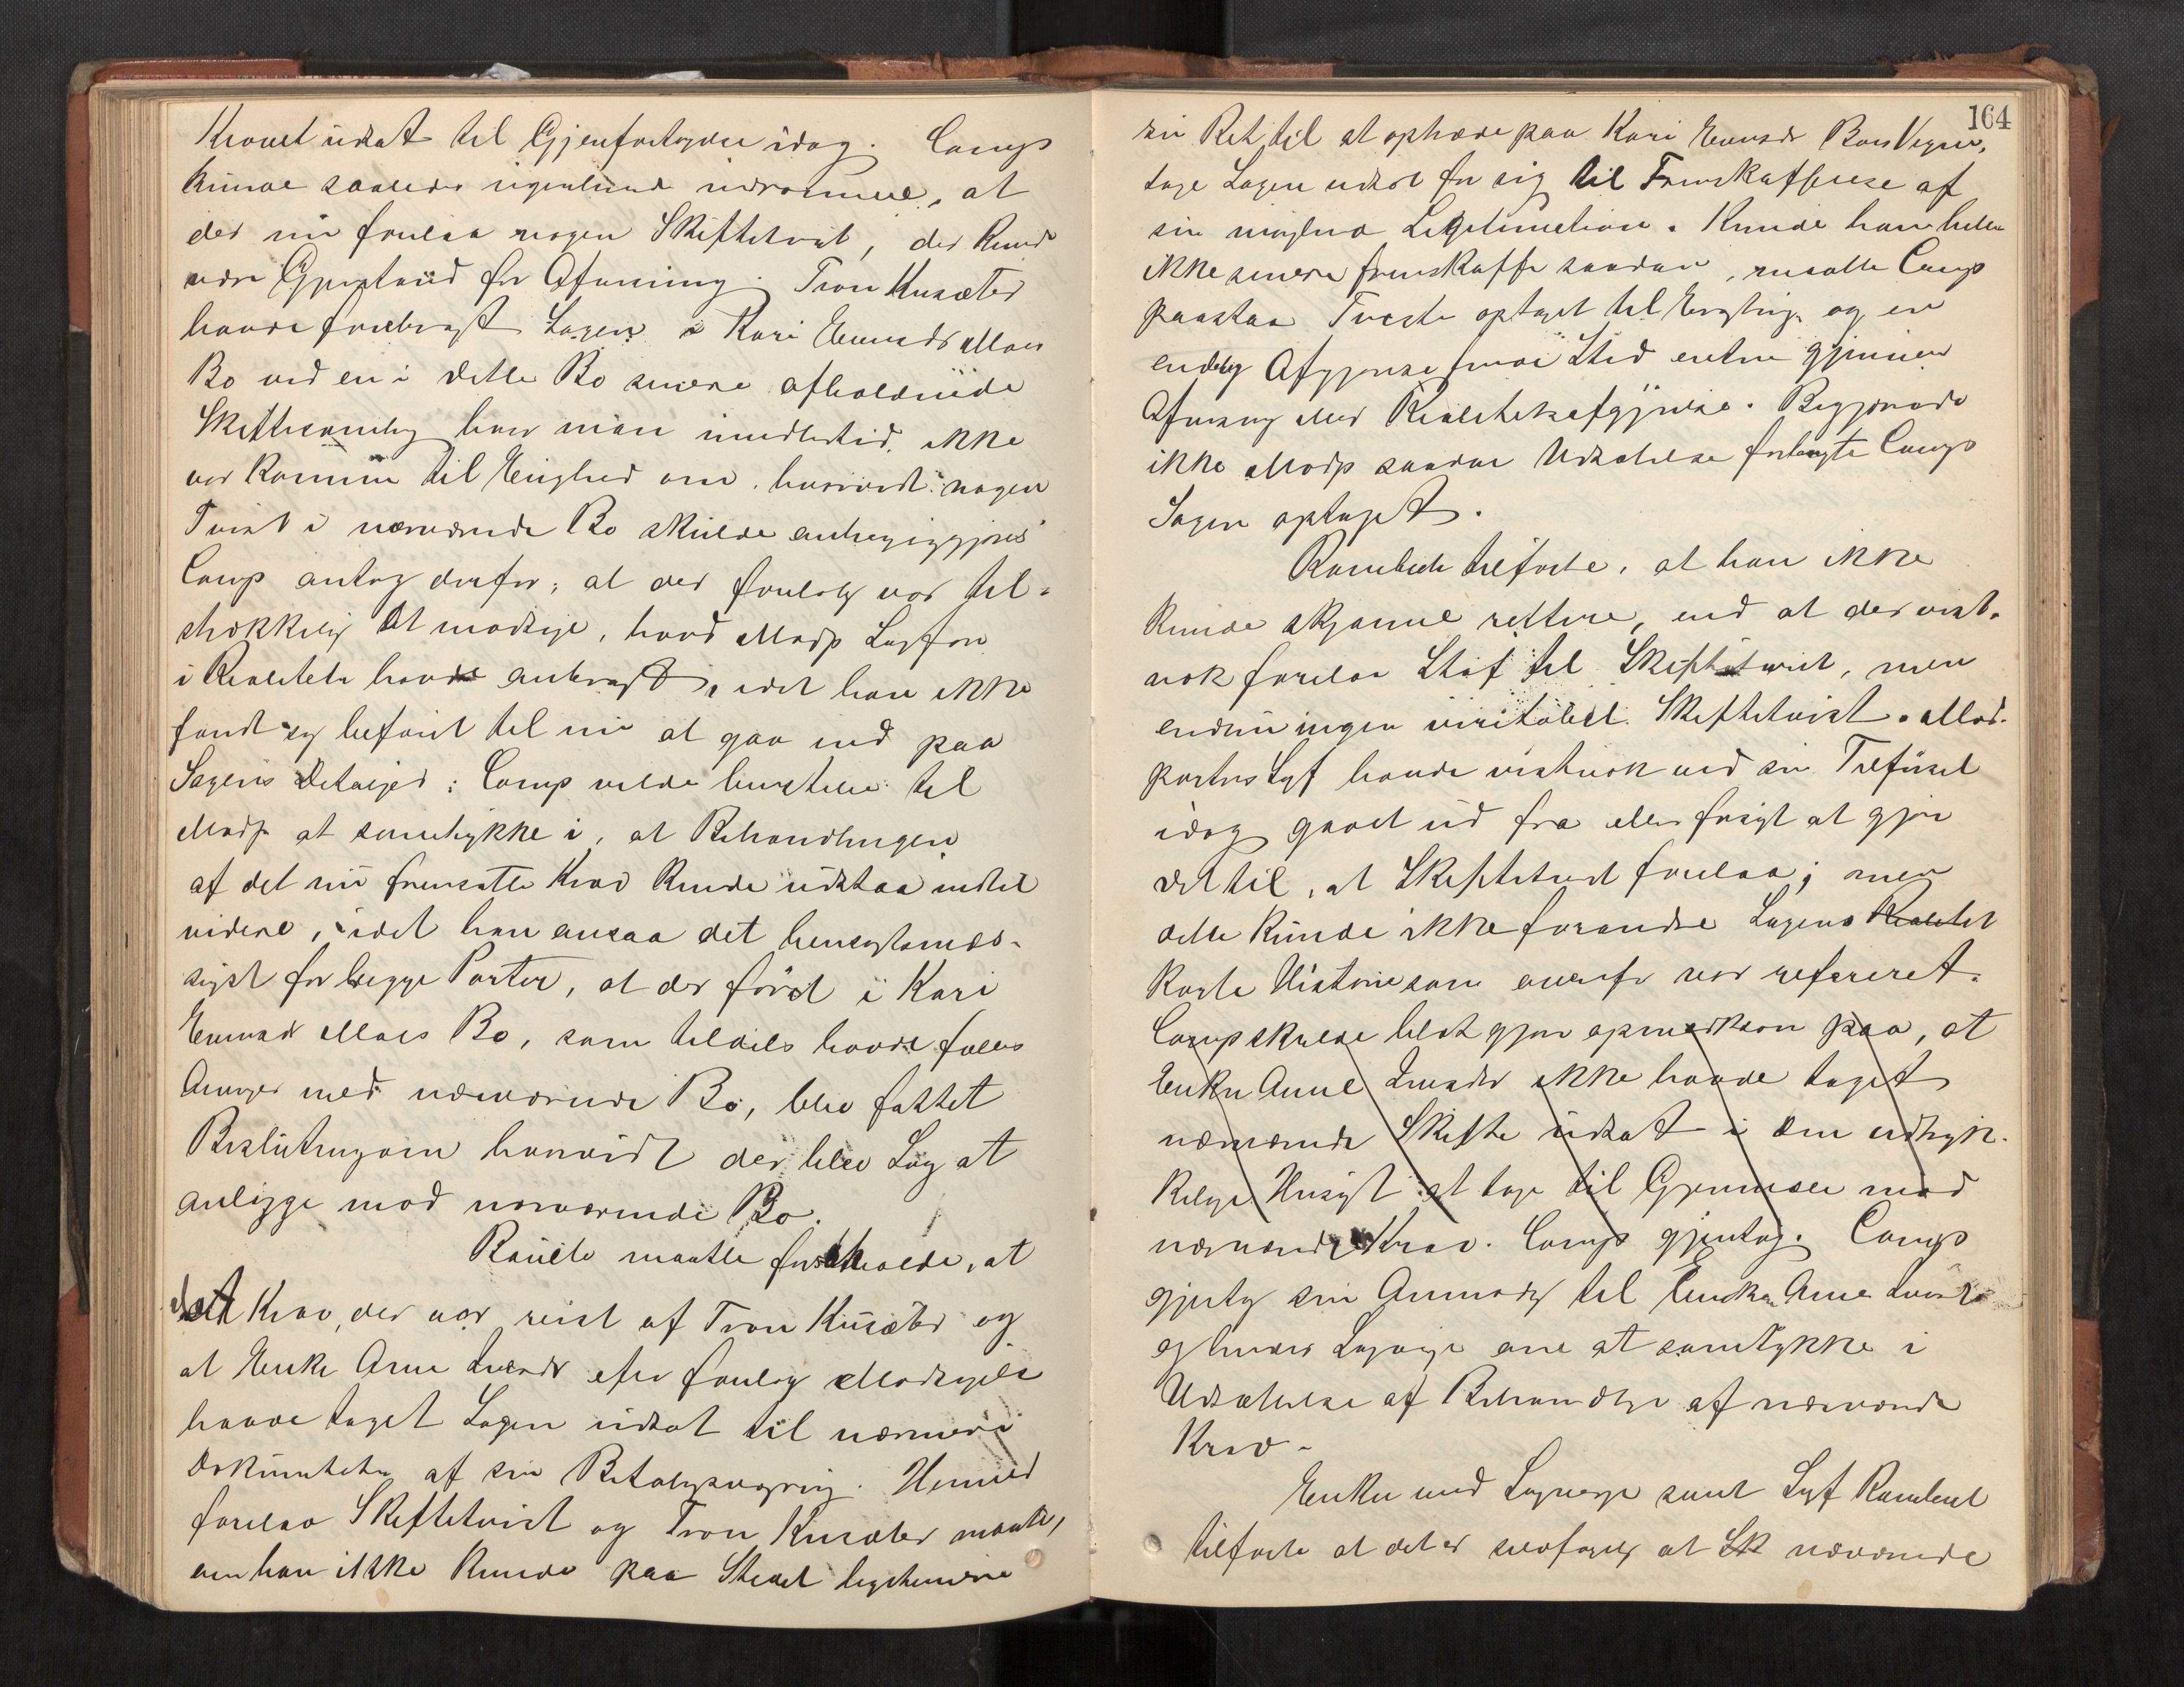 Kravet udsat til Gjenfortagelse idag. Comp
kunde saaledes ingenlunde indrømme, at
der nu forelaa nogen Skiftetvist, der kunde
være Gjenstand for Afvisning. Tron Kusæter
havde frembragt Sagen i Kari Moes
Bo ved en i dette Bo senere afholdende
Skiftesamling hvor man imidlertid ikke
var kommen til Enighed om, hvorvidt nogen
Tvist i nærværende Bo skulde anhængiggjøres
Comp antog derfor, at der foreløbig var til-
strækkelig at modsige, hvad Modp Sagfører
i Realiteten havde anbragt, idet han ikke
fandt sig beføiet til nu at gaa ind paa
Sagens Detaljer; Comp vilde henstille til
Modp at samtykke i, at Behandlingen
af det nu fremsatte Krav kunde udstaa indtil
videre, idet han ansaa det hensigtsmæs-
sigst for begge Parter, at der først i Kari
Moes Bo, som tildels havde fælles
Arvinger med nærværende Bo, blev fattet
Beslutning om hvorvidt der blev Sag at
anlægge mod nærværende Bo.
maatte fastholde, at
det Krav, der var reist af Tron Kusæter og
at Enke Anne efter foreløbig Modsigelse
havde taget Sagen udsat til nærmere
af sin Betalingsvægring. Hermed
forelaa Skiftetvist og Tron Kusæter maatte,
om han ikke kunde paa Stedet legitimere
164
sin Ret til at optræde paa Kari Boes Vegne,
tage Sagen udsat for sig til Fremskaffelse af
sin manglende Legitimation. Kunde han heller
ikke senere fremskaffe saadan, maatte Comp
paastaa Tvisten optaget til og en
endelig Afgjørelse imod Sted enten gjennem
Afvisning eller Realitetsafgjørelse. Begjærede
ikke Modp saadan Udsættelse forlangte Comp
Sagen optaget.
tilførte, at han ikke
kunde skjønne rettere, end at der vist-
nok forelaa Stof til Skiftetvist, men
endnu ingen virkelig Skiftetvist. Mod-
partens Sagf havde vistnok ved sin Tilførsel
idag gaaet ud fra eller forsøgt at gjøre
det til, at Skiftetvist forelaa; men
dette kunde ikke forandre Sagens Realitet
korte Historie som ovenfor var refereret.
Comp skulde blot gjøre opmærksom paa, at
Enken Anne ikke havde taget
nærværende Skifte udsat i den udtryk-
kelige Hensigt at tage til Gjenmæle mod
nærværende Krav. Comp gjentog. Comp
gjentog sin Anmodning til Enken Anne
og hendes Lagværge om at samtykke i
Udsættelse af Behandling af nærværende
Krav.
Enken med Lagværge samt Sagf
tilførte at det er selvfølgelig at Sk nærværende